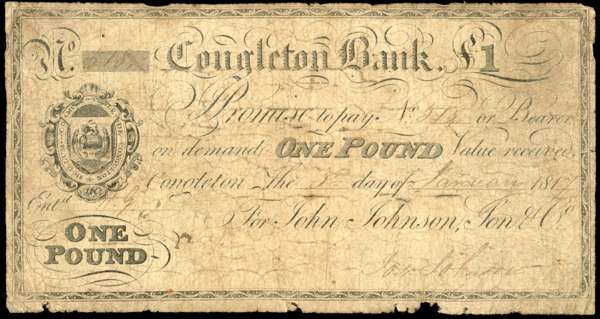 No. Congleton Bank. £1
I Promise to pay No. or Bearer
on demand ONE POUND Value received.
Congleton The day of January 1817
Entd.
For John Johnson, Son & Co.
ONE
POUND
Jno. Johnson